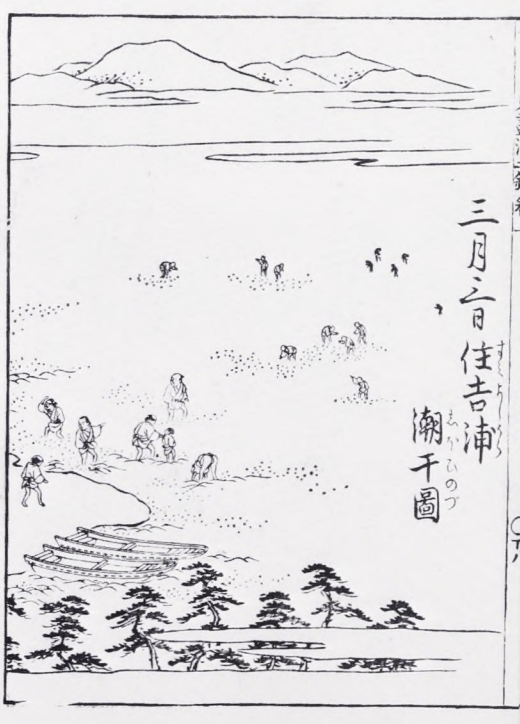 三月三日住吉浦
すみよしうら
潮干圖
しほひのづ